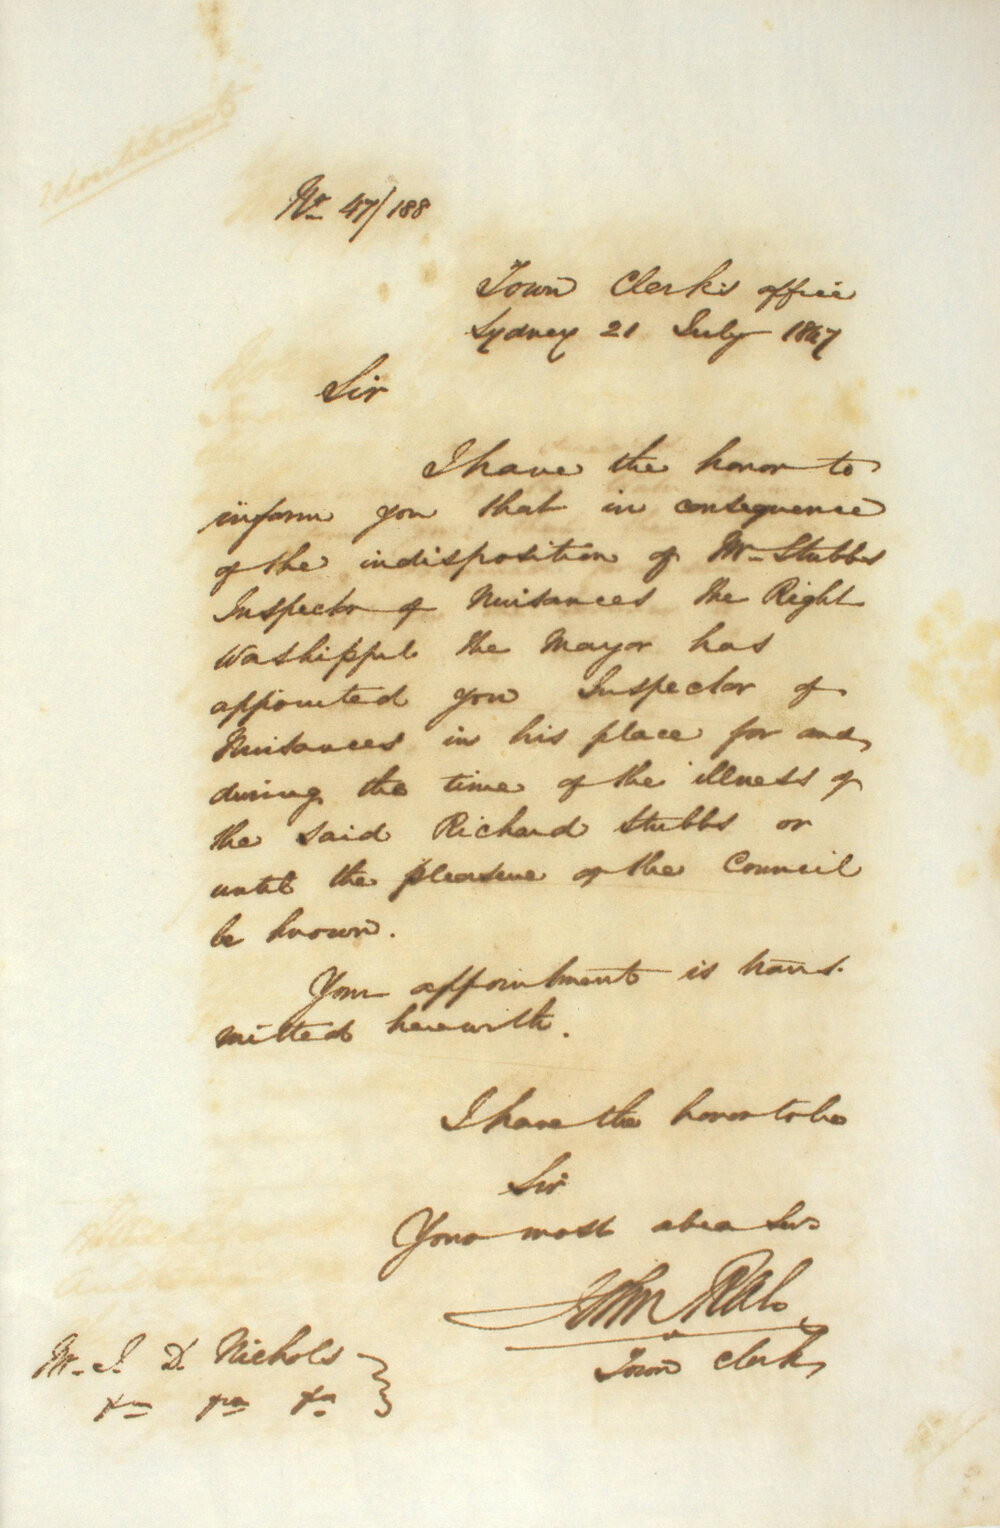 No 47/188
Town Clerk's office
Sydney 21 July 1847
Sir
I have the honor to
inform you that in consequence
of the indisposition of Mr Stubbs
Inspector of Nuisances the Right
Worshipful the Mayor has
appointed you Inspector of
Nuisances in his place for and
during the time of the illness of
the said Richard Stubbs or
until the pleasure of the Council
be known.
Your appointment is trans-
mitted herewith.
I have the honor to be
Sir
Your most obed Serv
John Rae
Town Clerk
Mr J. D. Nichols